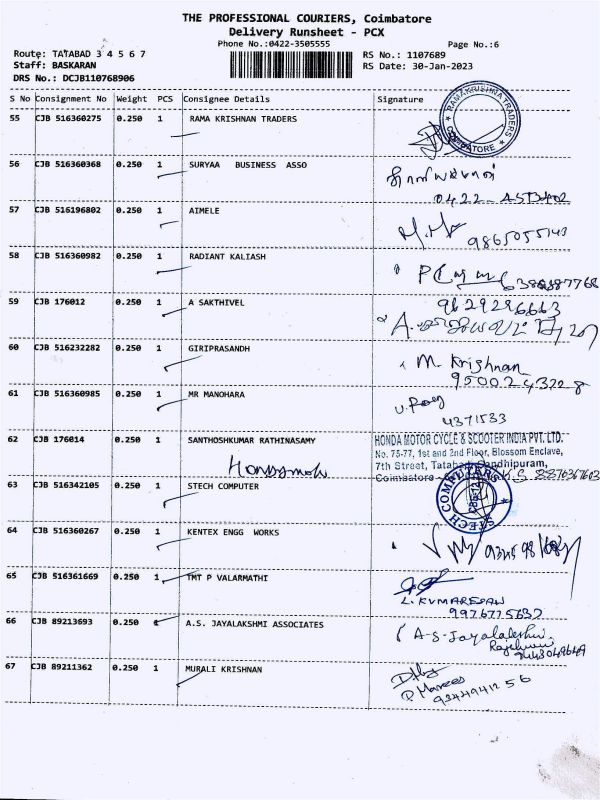 THE PROFESSIONAL COURIERS, Coimbatore
Delivery Runsheet - PCX
Phone No.:0422-3505555
Page No.:6
Route: TATABAD 3 4 5 6 7
RS No.: 1107689
Staff: BASKARAN
RS Date: 30-Jan-2023
DRS No.: DCJB110768906
S No Consignment No Weight PCS Consignee Details Signature
55 CJB 516360275 0.250 1 RAMA KRISHNAN TRADERS
RAMAKRISHNA TRADERS
COIMBATORE
56 CJB 516360368 0.250 1 SURYAA BUSINESS ASSO
57 CJB 516196802 0.250 1 AIMELE
9865055143
58 CJB 516360982 0.250 1 RADIANT KALIASH
59 CJB 176012 0.250 1 A SAKTHIVEL
9629286663
60 CJB 516232282 0.250 1 GIRIPRASANDH
M. Krishnan
9500243228
61 CJB 516360985 0.250 1 MR MANOHARA
4371533
62 CJB 176014 0.250 1 SANTHOSHKUMAR RATHINASAMY
HONDA MOTOR CYCLE & SCOOTER INDIA PVT. LTD.
No. 75-77, 1st and 2nd Floor, Blossom Enclave,
7th Street, Tatabad, Gandhipuram,
Coimbatore
63 CJB 516342105 0.250 1 STECH COMPUTER
STECH COMPUTERS
64 CJB 516360267 0.250 1 KENTEX ENGG WORKS
65 CJB 516361669 0.250 1 TMT P VALARMATHI
L. KUMARESAN
9976775632
66 CJB 89213693 0.250 1 A.S. JAYALAKSHMI ASSOCIATES
A-S-Jayalakshmi
9443049649
67 CJB 89211362 0.250 1 MURALI KRISHNAN